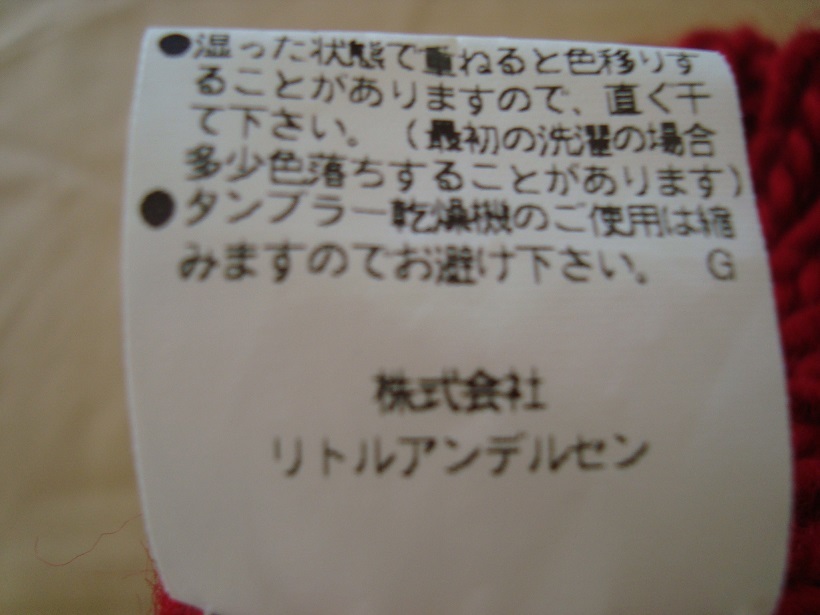 ●湿った状態で重ねると色移りす
ることがありますので、直ぐ干し
て下さい。（最初の洗濯の場合
多少色落ちすることがあります）
●タンブラー乾燥機のご使用は縮
みますのでお避け下さい。 G
株式会社
リトルアンデルセン